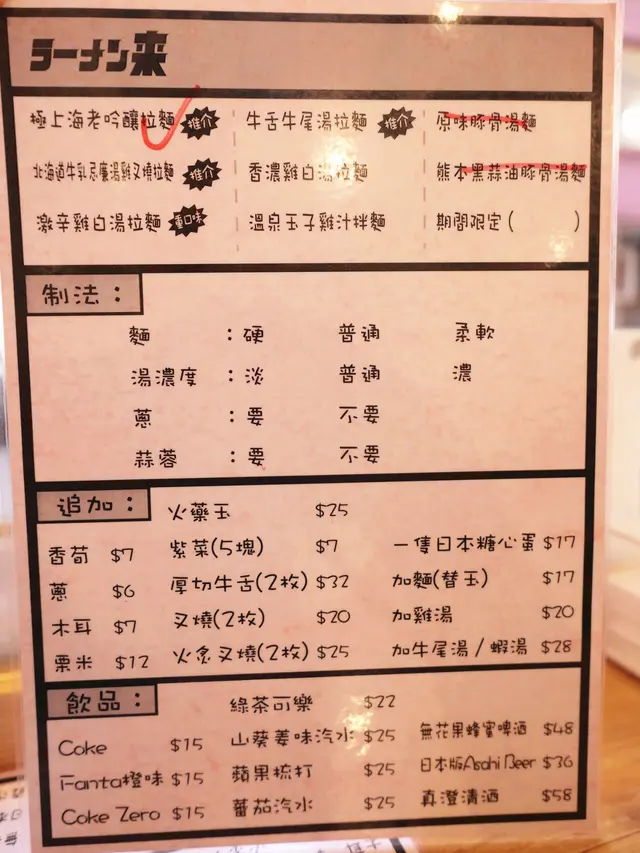 ラーメン来
極上海老吟釀拉麵 推介 牛舌牛尾湯拉麵 推介 原味豚骨湯麵
北海道牛乳忌廉湯雞叉燒拉麵 推介 香濃雞白湯拉麵 熊本黑蒜油豚骨湯麵
激辛雞白湯拉麵 重口味 溫泉玉子雞汁拌麵 期間限定( )
制法：
麵 ：硬 普通 柔軟
湯濃度 ：淡 普通 濃
蔥 ：要 不要
蒜蓉 ：要 不要
追加： 火藥玉 $25
香荀 $7 紫菜(5塊) $7 一隻日本糖心蛋 $17
蔥 $6 厚切牛舌(2枚) $32 加麵(替玉) $17
木耳 $7 叉燒(2枚) $20 加雞湯 $20
粟米 $12 火炙叉燒(2枚) $25 加牛尾湯/蝦湯 $28
飲品： 綠茶可樂 $22
Coke $15 山葵姜味汽水 $25 無花果蜂蜜啤酒 $48
Fanta橙味 $15 蘋果梳打 $25 日本版Asahi Beer $36
Coke Zero $15 蕃茄汽水 $25 真澄清酒 $58